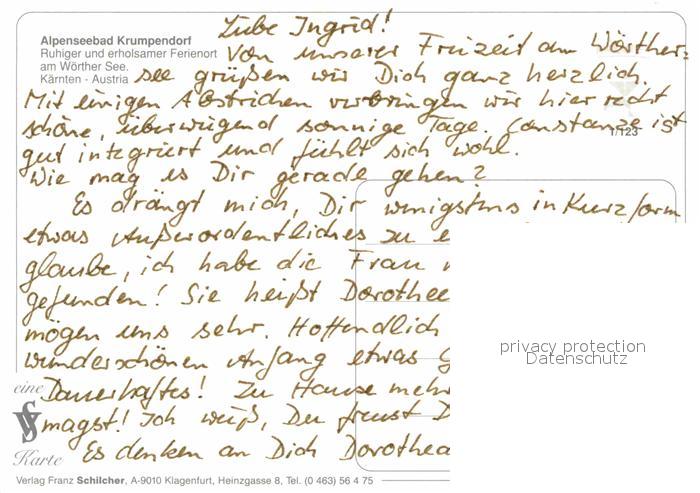 Liebe Ingrid!
Alpenseebad Krumpendorf
Ruhiger und erholsamer Ferienort
am Wörther See.
Kärnten - Austria
Von unserer Freizeit am Wörther-
see grüßen wir Dich ganz herzlich.
Mit einigen Abstrichen verbringen wir hier recht
schöne, überwiegend sonnige Tage. Constanze ist
1/123
gut integriert und fühlt sich wohl.
Wie mag es Dir gerade gehen?
Es drängt mich, Dir wenigstens in Kurzform
etwas Außerordentliches zu
glaube, ich habe die Frau
gefunden! Sie heißt Dorothee
mögen uns sehr. Hoffendlich
wunderschönen Anfang etwas
Dauerhaftes! Zu Hause mehr
magst! Ich weiß, Du freust
Es denken an Dich Dorothea
privacy protection
Datenschutz
eine
Karte
Verlag Franz Schilcher, A-9010 Klagenfurt, Heinzgasse 8, Tel. (0 463) 56 4 75